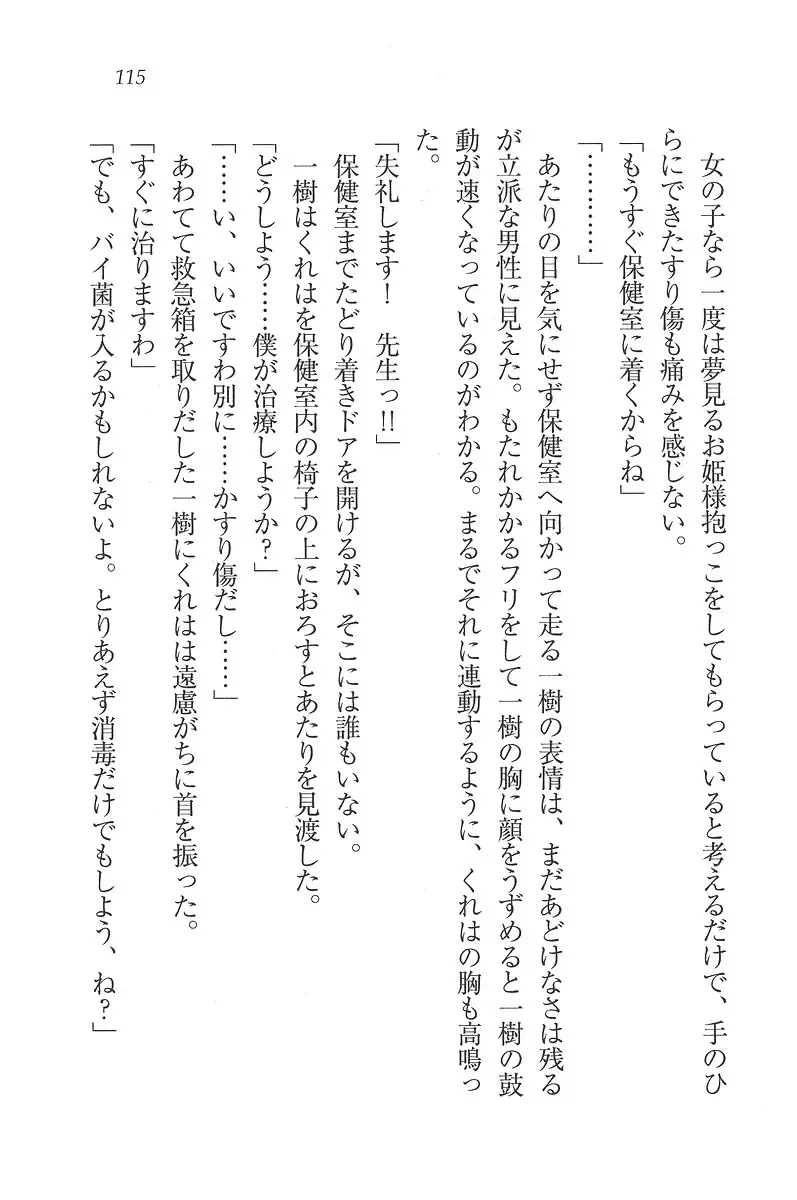 115
女の子なら一度は夢見るお姫様抱っこをしてもらっていると考えるだけで、手のひ
らにできたすり傷も痛みを感じない。
「もうすぐ保健室に着くからね」
「…………」
あたりの目を気にせず保健室へ向かって走る一樹の表情は、まだあどけなさは残る
が立派な男性に見えた。もたれかかるフリをして一樹の胸に顔をうずめると一樹の鼓
動が速くなっているのがわかる。まるでそれに連動するように、くれはの胸も高鳴っ
た。
「失礼します！　先生っ!!」
保健室までたどり着きドアを開けるが、そこには誰もいない。
一樹はくれはを保健室内の椅子の上におろすとあたりを見渡した。
「どうしよう……僕が治療しようか？」
「……い、いいですわ別に……かすり傷だし……」
あわてて救急箱を取りだした一樹にくれはは遠慮がちに首を振った。
「すぐに治りますわ」
「でも、バイ菌が入るかもしれないよ。とりあえず消毒だけでもしよう、ね？」